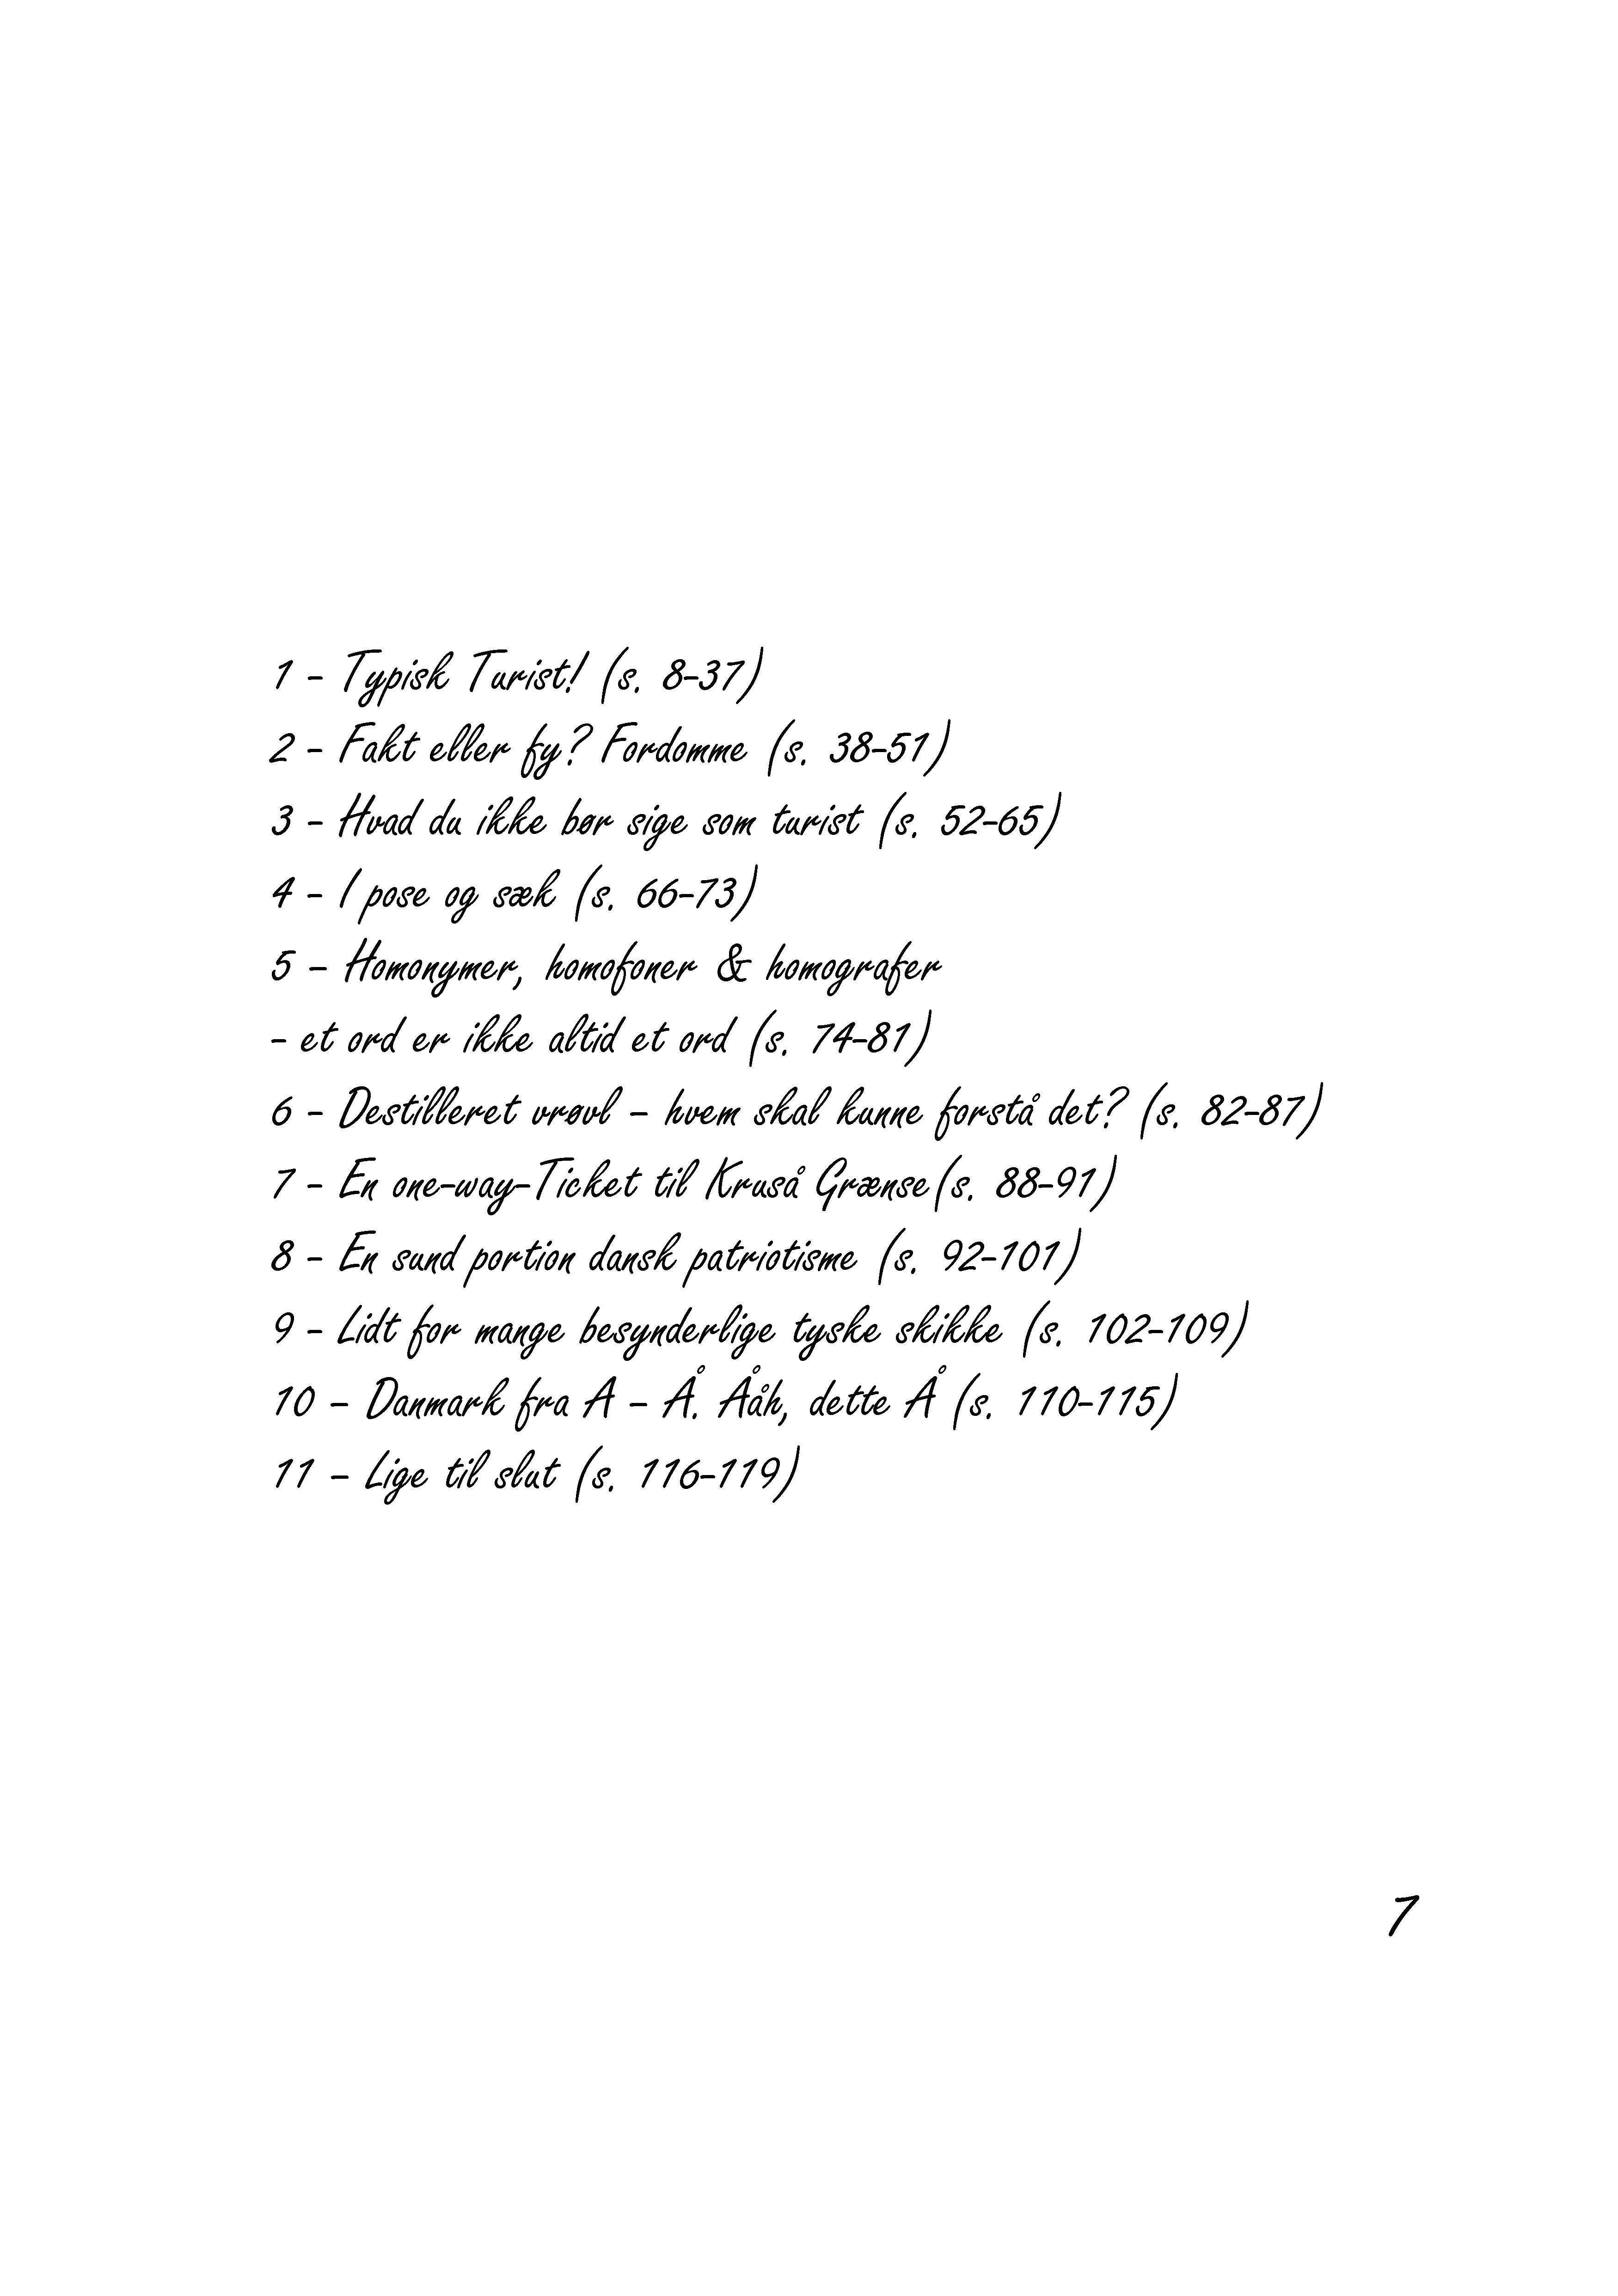 1 – Typisk Turist! (s. 8-37)
2 – Fakt eller fy? Fordomme (s. 38-51)
3 – Hvad du ikke bør sige som turist (s. 52-65)
4 – I pose og sæk (s. 66-73)
5 – Homonymer, homofoner & homografer
- et ord er ikke altid et ord (s. 74-81)
6 – Destilleret vrøvl – hvem skal kunne forstå det? (s. 82-87)
7 – En one-way-Ticket til Kruså Grænse(s. 88-91)
8 – En sund portion dansk patriotisme (s. 92-101)
9 – Lidt for mange besynderlige tyske skikke (s. 102-109)
10 – Danmark fra A – Å. Ååh, dette Å (s. 110-115)
11 – Lige til slut (s. 116-119)
7